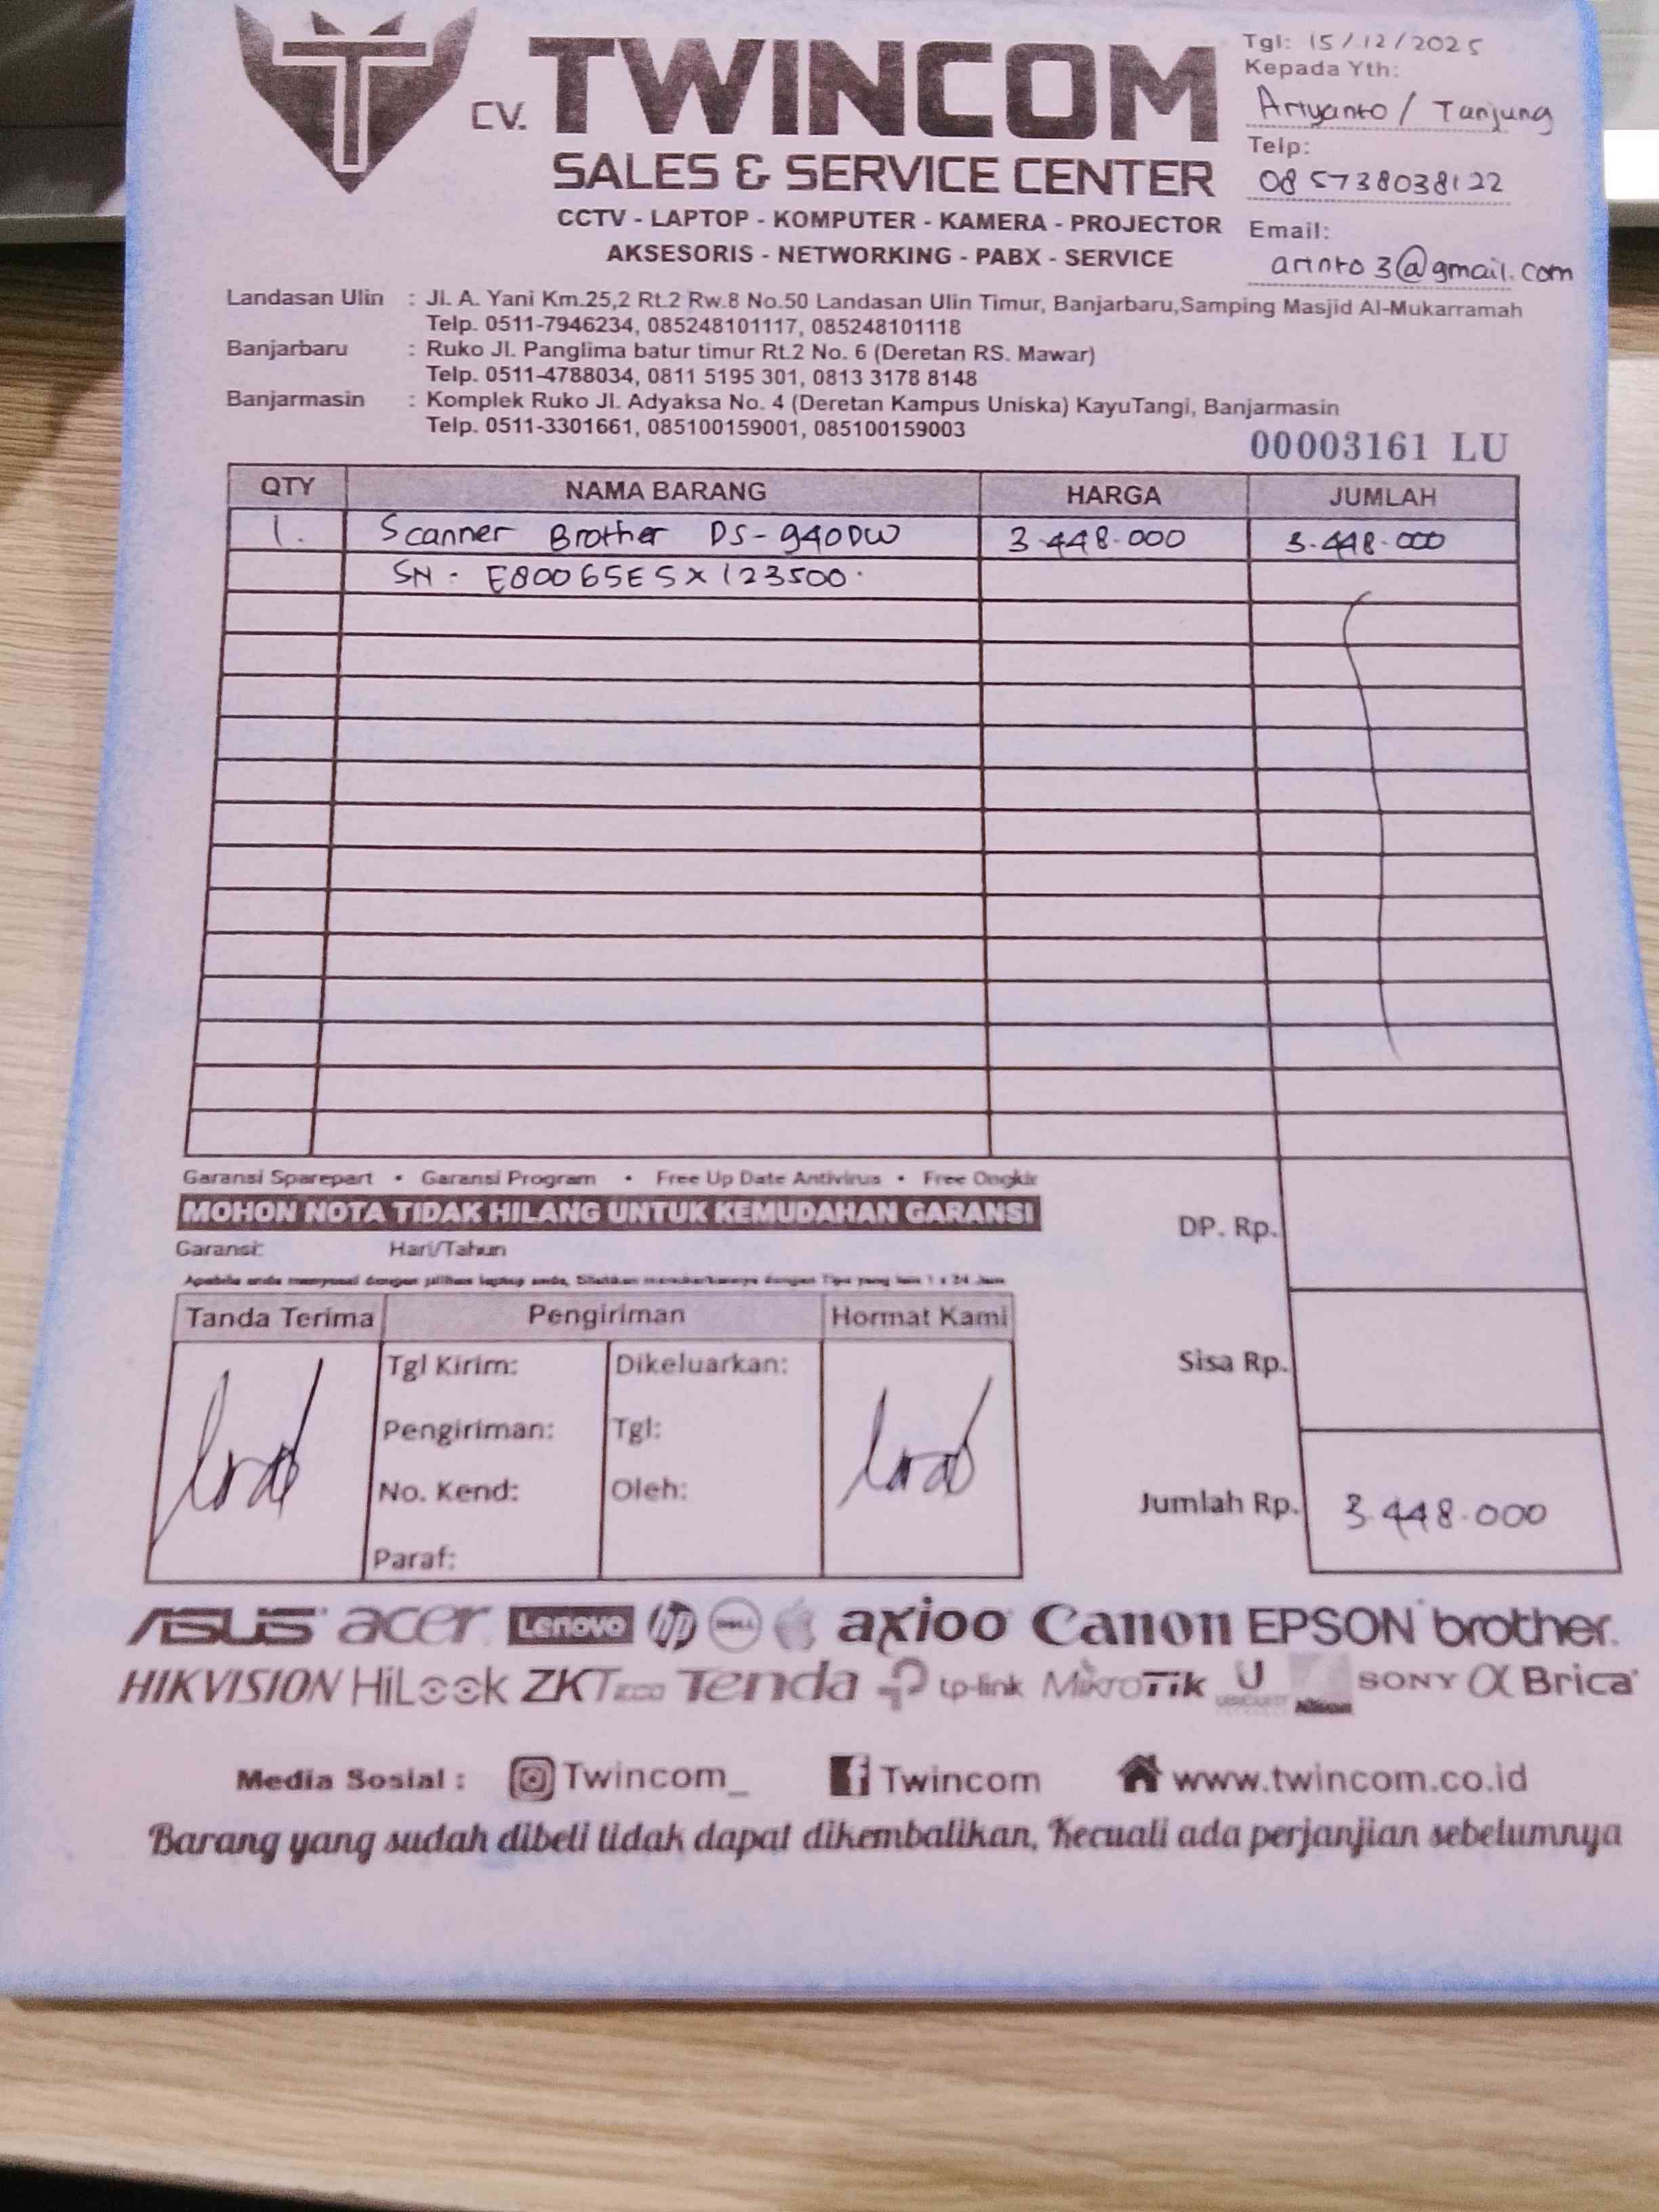 CV. TWINCOM
SALES & SERVICE CENTER
CCTV - LAPTOP - KOMPUTER - KAMERA - PROJECTOR
AKSESORIS - NETWORKING - PABX - SERVICE
Tgl: 15/12/2025
Kepada Yth:
Ariyanto / Tanjung
Telp:
085738038122
Email:
arinto3@gmail.com
Landasan Ulin : Jl. A. Yani Km.25,2 Rt.2 Rw.8 No.50 Landasan Ulin Timur, Banjarbaru,Samping Masjid Al-Mukarramah
Telp. 0511-7946234, 085248101117, 085248101118
Banjarbaru : Ruko Jl. Panglima batur timur Rt.2 No. 6 (Deretan RS. Mawar)
Telp. 0511-4788034, 0811 5195 301, 0813 3178 8148
Banjarmasin : Komplek Ruko Jl. Adyaksa No. 4 (Deretan Kampus Uniska) KayuTangi, Banjarmasin
Telp. 0511-3301661, 085100159001, 085100159003
00003161 LU
QTY NAMA BARANG HARGA JUMLAH
1. Scanner Brother DS-940DW 3.448.000 3.448.000
SN. E80065E5X123500.
Garansi Sparepart • Garansi Program • Free Up Date Antivirus • Free Ongkir
MOHON NOTA TIDAK HILANG UNTUK KEMUDAHAN GARANSI
Garansi: Hari/Tahun
Apabila anda menyesal dengan pilihan laptop anda, Silahkan menukarkannya dengan Tipe yang lain 1 x 24 Jam
DP. Rp.
Tanda Terima Pengiriman Hormat Kami
Tgl Kirim: Dikeluarkan:
Sisa Rp.
Pengiriman: Tgl:
No. Kend: Oleh:
Jumlah Rp. 3.448.000
Paraf:
ASUS acer Lenovo hp DELL axioo Canon EPSON brother
HIKVISION HiLook ZKTeco Tenda tp-link MikroTik U UBIQUITI Nikon SONY α Brica
Media Sosial : Twincom_ Twincom www.twincom.co.id
Barang yang sudah dibeli tidak dapat dikembalikan, Kecuali ada perjanjian sebelumnya